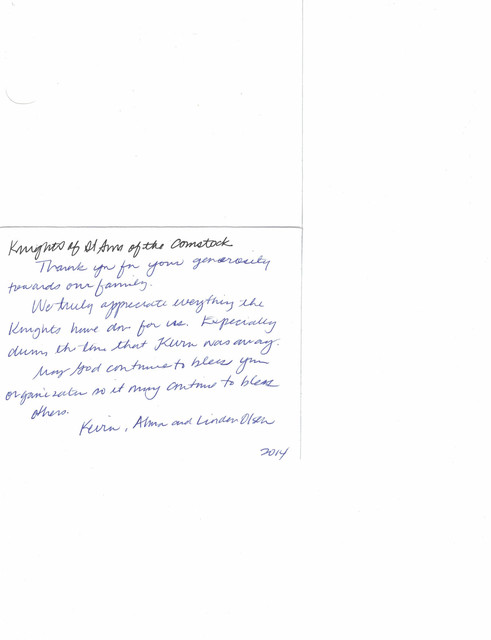 Knights of St Ann of the Comstock
Thank you for your generosity
towards our family.
We truly appreciate everything the
Knights have done for us. Especially
during the time that Kevin was away.
May God continue to bless your
organization so it may continue to bless
others.
Kevin, and Linden Olsen
2014